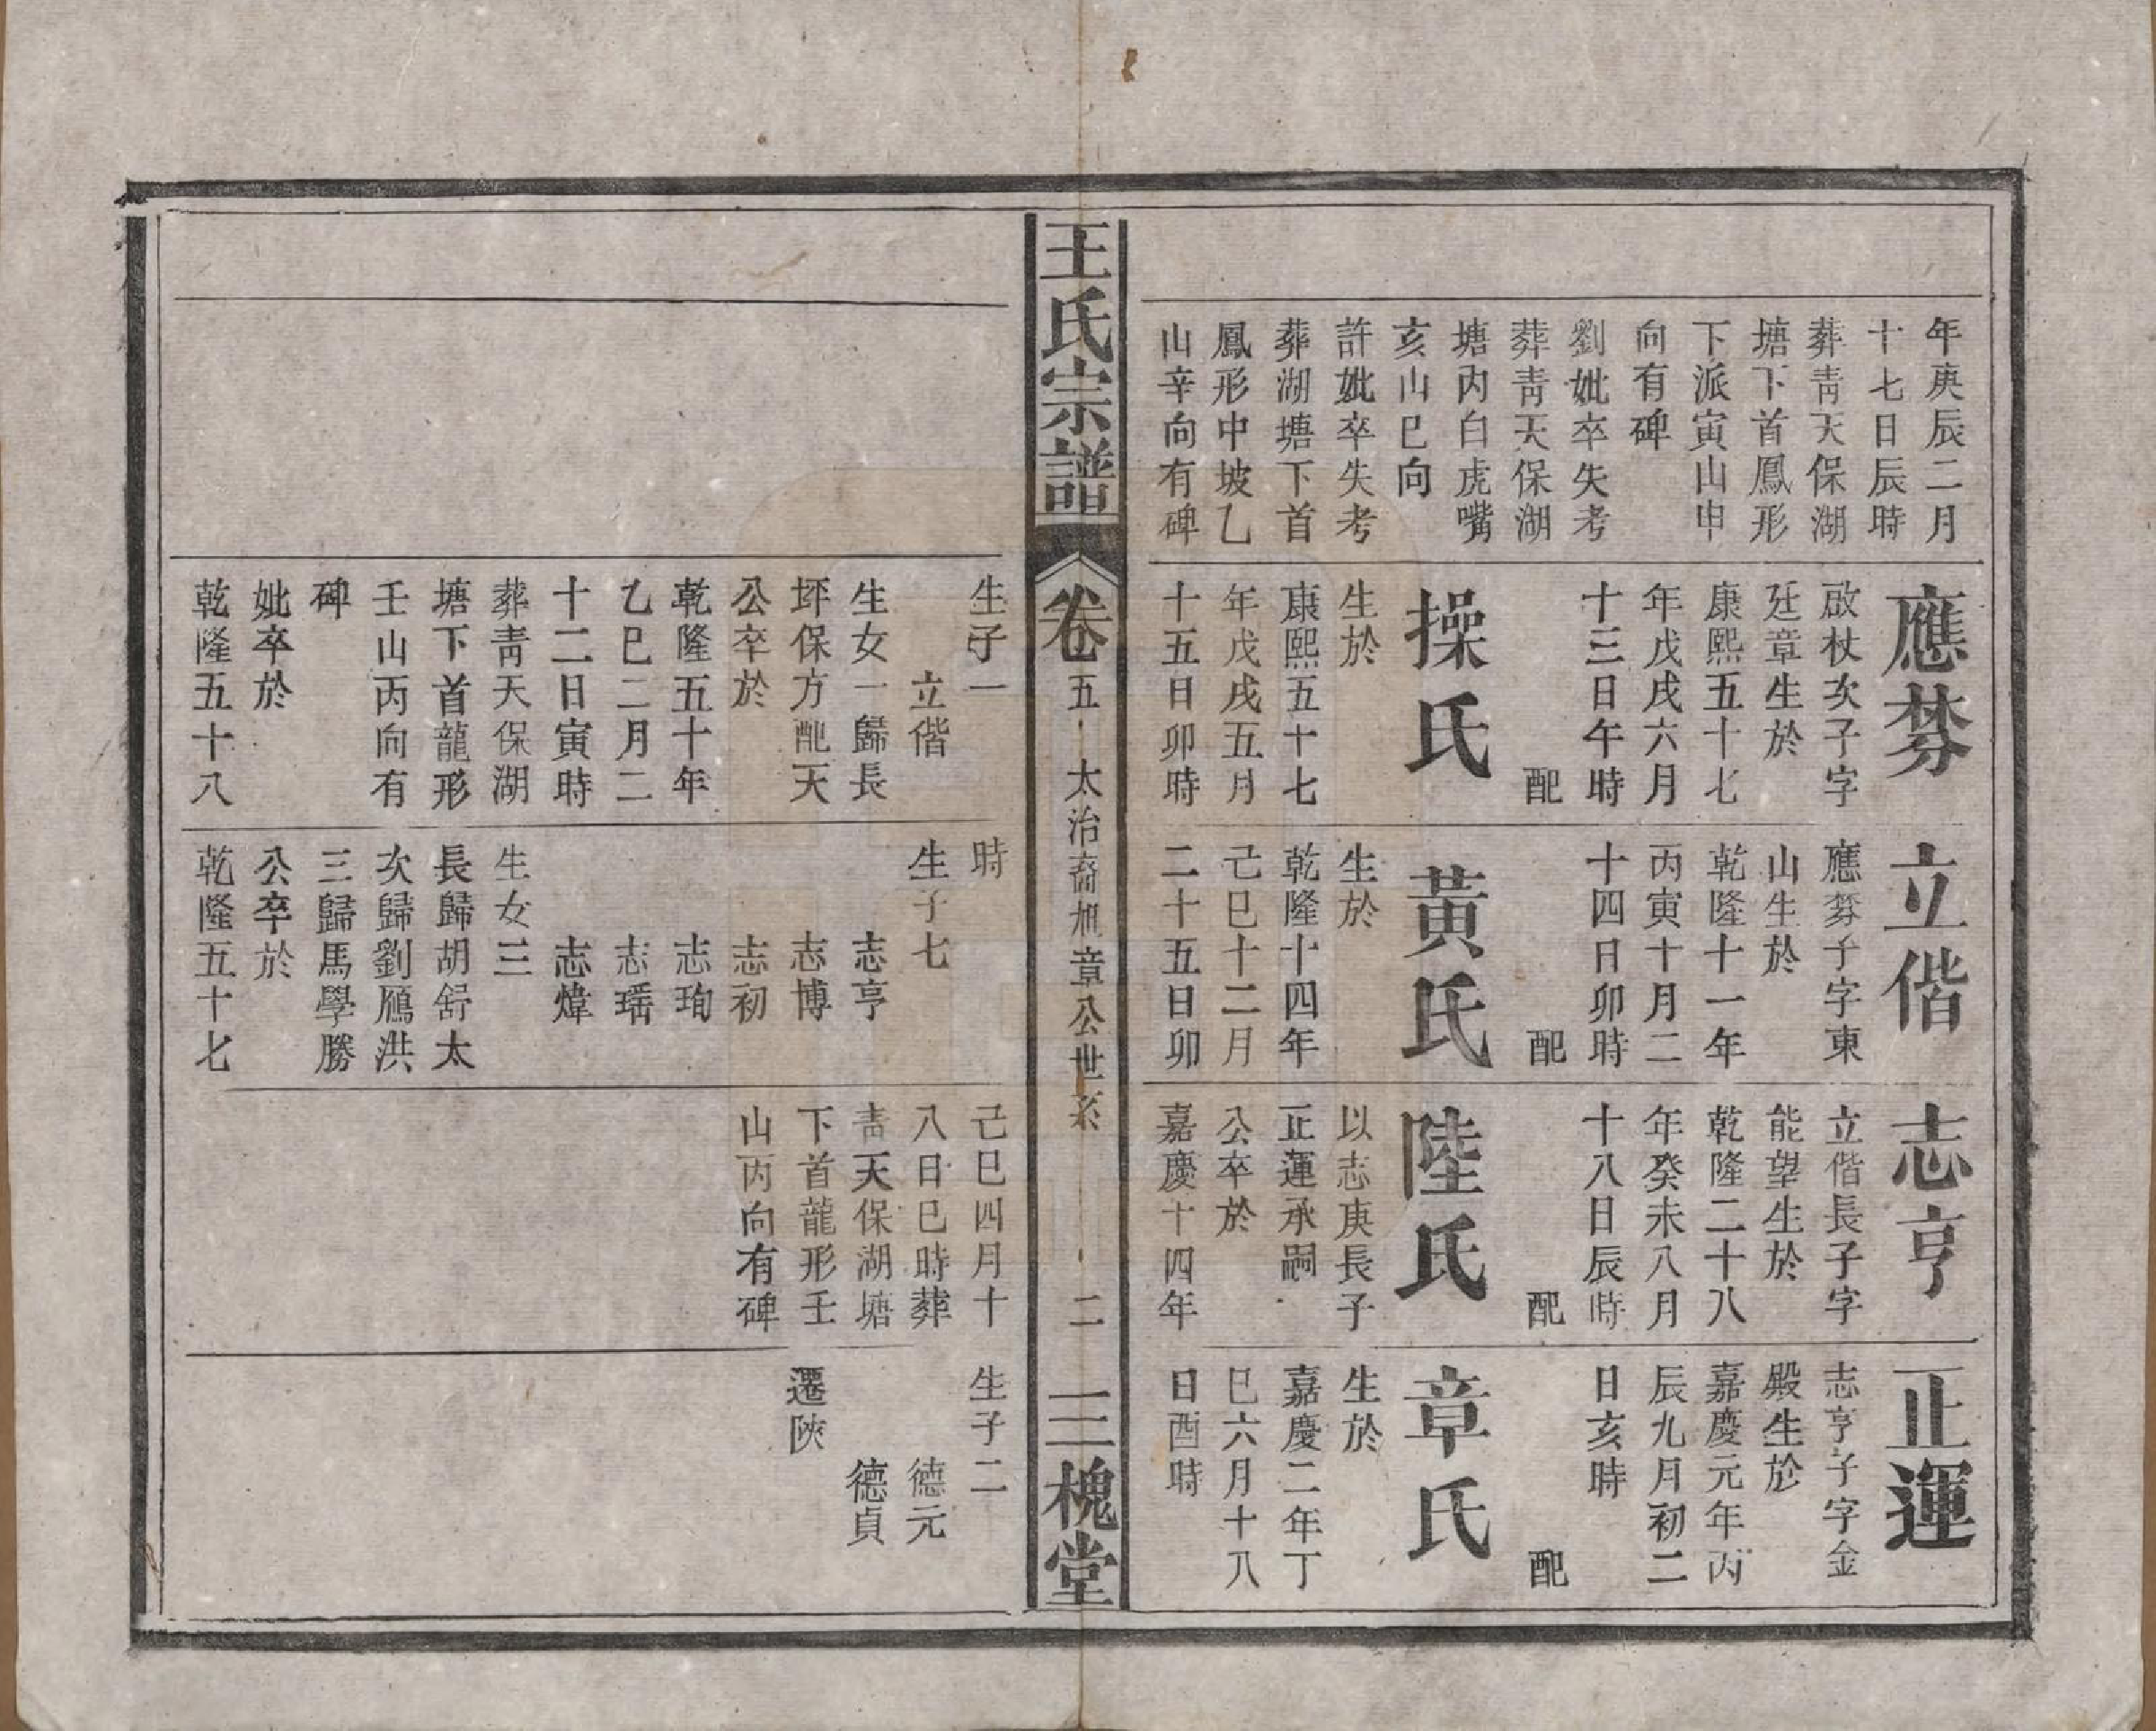 年庚辰二月
十七日辰時
葬靑天保湖
塘下首鳳形
下派寅山申
向有碑
劉妣卒失考
葬靑天保湖
塘內白虎嘴
亥山巳向
許妣卒失考
葬湖塘下首
鳳形中坡乙
山辛向有碑
應棼
啟杖次子字
廷章生於
康熙五十七
年戊戌六月
十三日午時
配
操氏
生於
康熙五十七
年戊戌五月
十五日卯時
立偕
應棼子字東
山生於
乾隆十一年
丙寅十月二
十四日卯時
配
黃氏
生於
乾隆十四年
己巳十二月
二十五日卯
志亨
立偕長子字
能望生於
乾隆二十八
年癸未八月
十八日辰時
配
陸氏
以志庚長子
正運承嗣
公卒於
嘉慶十四年
正運
志亨子字金
殿生於
嘉慶元年丙
辰九月初二
日亥時
配
章氏
生於
嘉慶二年丁
巳六月十八
日酉時
王氏宗譜
卷五
太治裔旭章公世系
二
三槐堂
生子一
立偕
生女一歸長
坪保方配天
公卒於
乾隆五十年
乙巳二月二
十二日寅時
葬靑天保湖
塘下首龍形
壬山丙向有
碑
妣卒於
乾隆五十八
時
生子七
志亨
志博
志初
志珣
志瑤
志煒
生女三
長歸胡舒太
次歸劉鴈洪
三歸馬學勝
公卒於
乾隆五十七
己巳四月十
八日巳時葬
靑天保湖塘
下首龍形壬
山丙向有碑
生子二
德元
德貞
遷陝